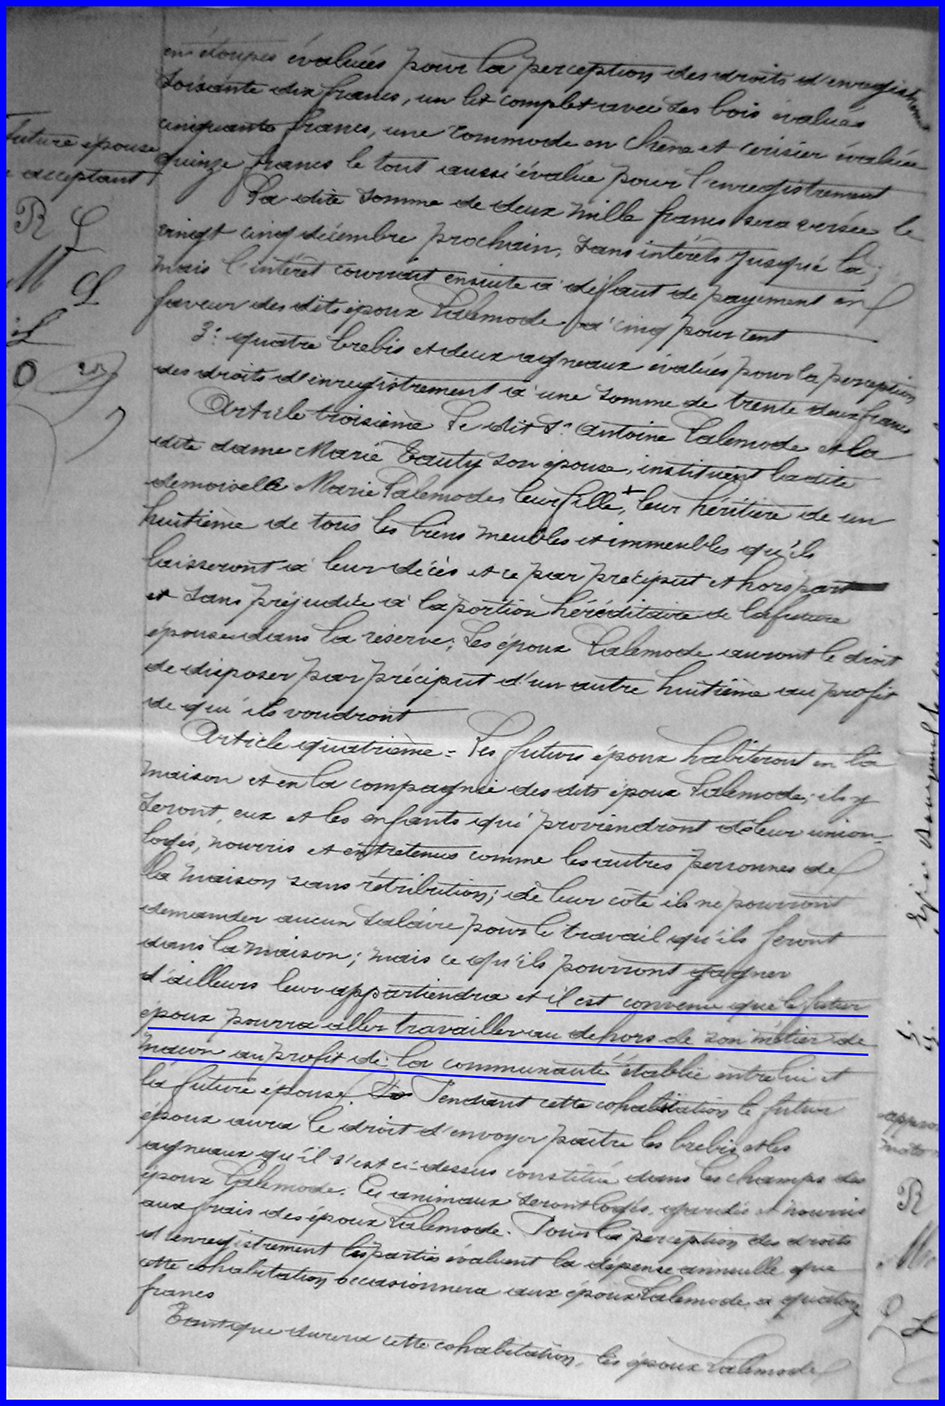 future épouse
acceptant
R L
M L
L
en étoupes évaluées pour la perception des droits d'enregistrem
soixante dix francs, un lit complet avec ses bois évalués
cinquante francs, une commode en chêne et cerisier évaluée
quinze francs le tout aussi évalué pour l'enregistrement
La dite somme de deux mille francs sera versée le
vingt cinq décembre prochain, sans intérêts jusque là;
mais l'intérêt courrait ensuite à défaut de payement en
faveur des dits époux Lalemode à cinq pour cent
3º quatre brebis et deux agneaux évalués pour la perception
des droits d'enregistrement à une somme de trente deux francs
Article troisième Le dit Sr Antoine Lalemode et la
dite dame Marie Tauty son épouse, instituent la dite
demoiselle Marie Lalemode, leur fille, leur héritière de un
huitième de tous les biens meubles et immeubles qu'ils
laisseront à leur décès et ce par préciput et hors part
et sans préjudice à la portion héréditaire de la future
épouse dans la réserve; Les époux Lalemode auront le droit
de disposer par préciput d'un autre huitième au profit
de qui ils voudront
Article quatrième = Les futurs époux habiteront en la
maison et en la compagnie des dits époux Lalemode; ils y
seront, eux et les enfants qui proviendront de leur union
logés, nourris et entretenus comme les autres personnes de
la maison sans rétribution; de leur côté ils ne pourront
demander aucun salaire pour le travail qu'ils feront
dans la maison; mais ce qu'ils pourront gagner
d'ailleurs leur appartiendra et il est convenu que le futur
époux pourra aller travailler au dehors de son métier de
maçon au profit de la communauté établie entre lui et
la future épouse. Pendant cette cohabitation le futur
époux aura le droit d'envoyer paître les brebis et les
agneaux qu'il s'est ci-dessus constitué dans les champs des
époux Lalemode. Ces animaux seront logés, gardés et nourris
aux frais des époux Lalemode. Pour la perception des droits
d'enregistrement les parties évaluent la dépense annuelle que
cette cohabitation occasionnera aux époux Lalemode à quatorze
francs
Tant que durera cette cohabitation, les époux Lalemode
R